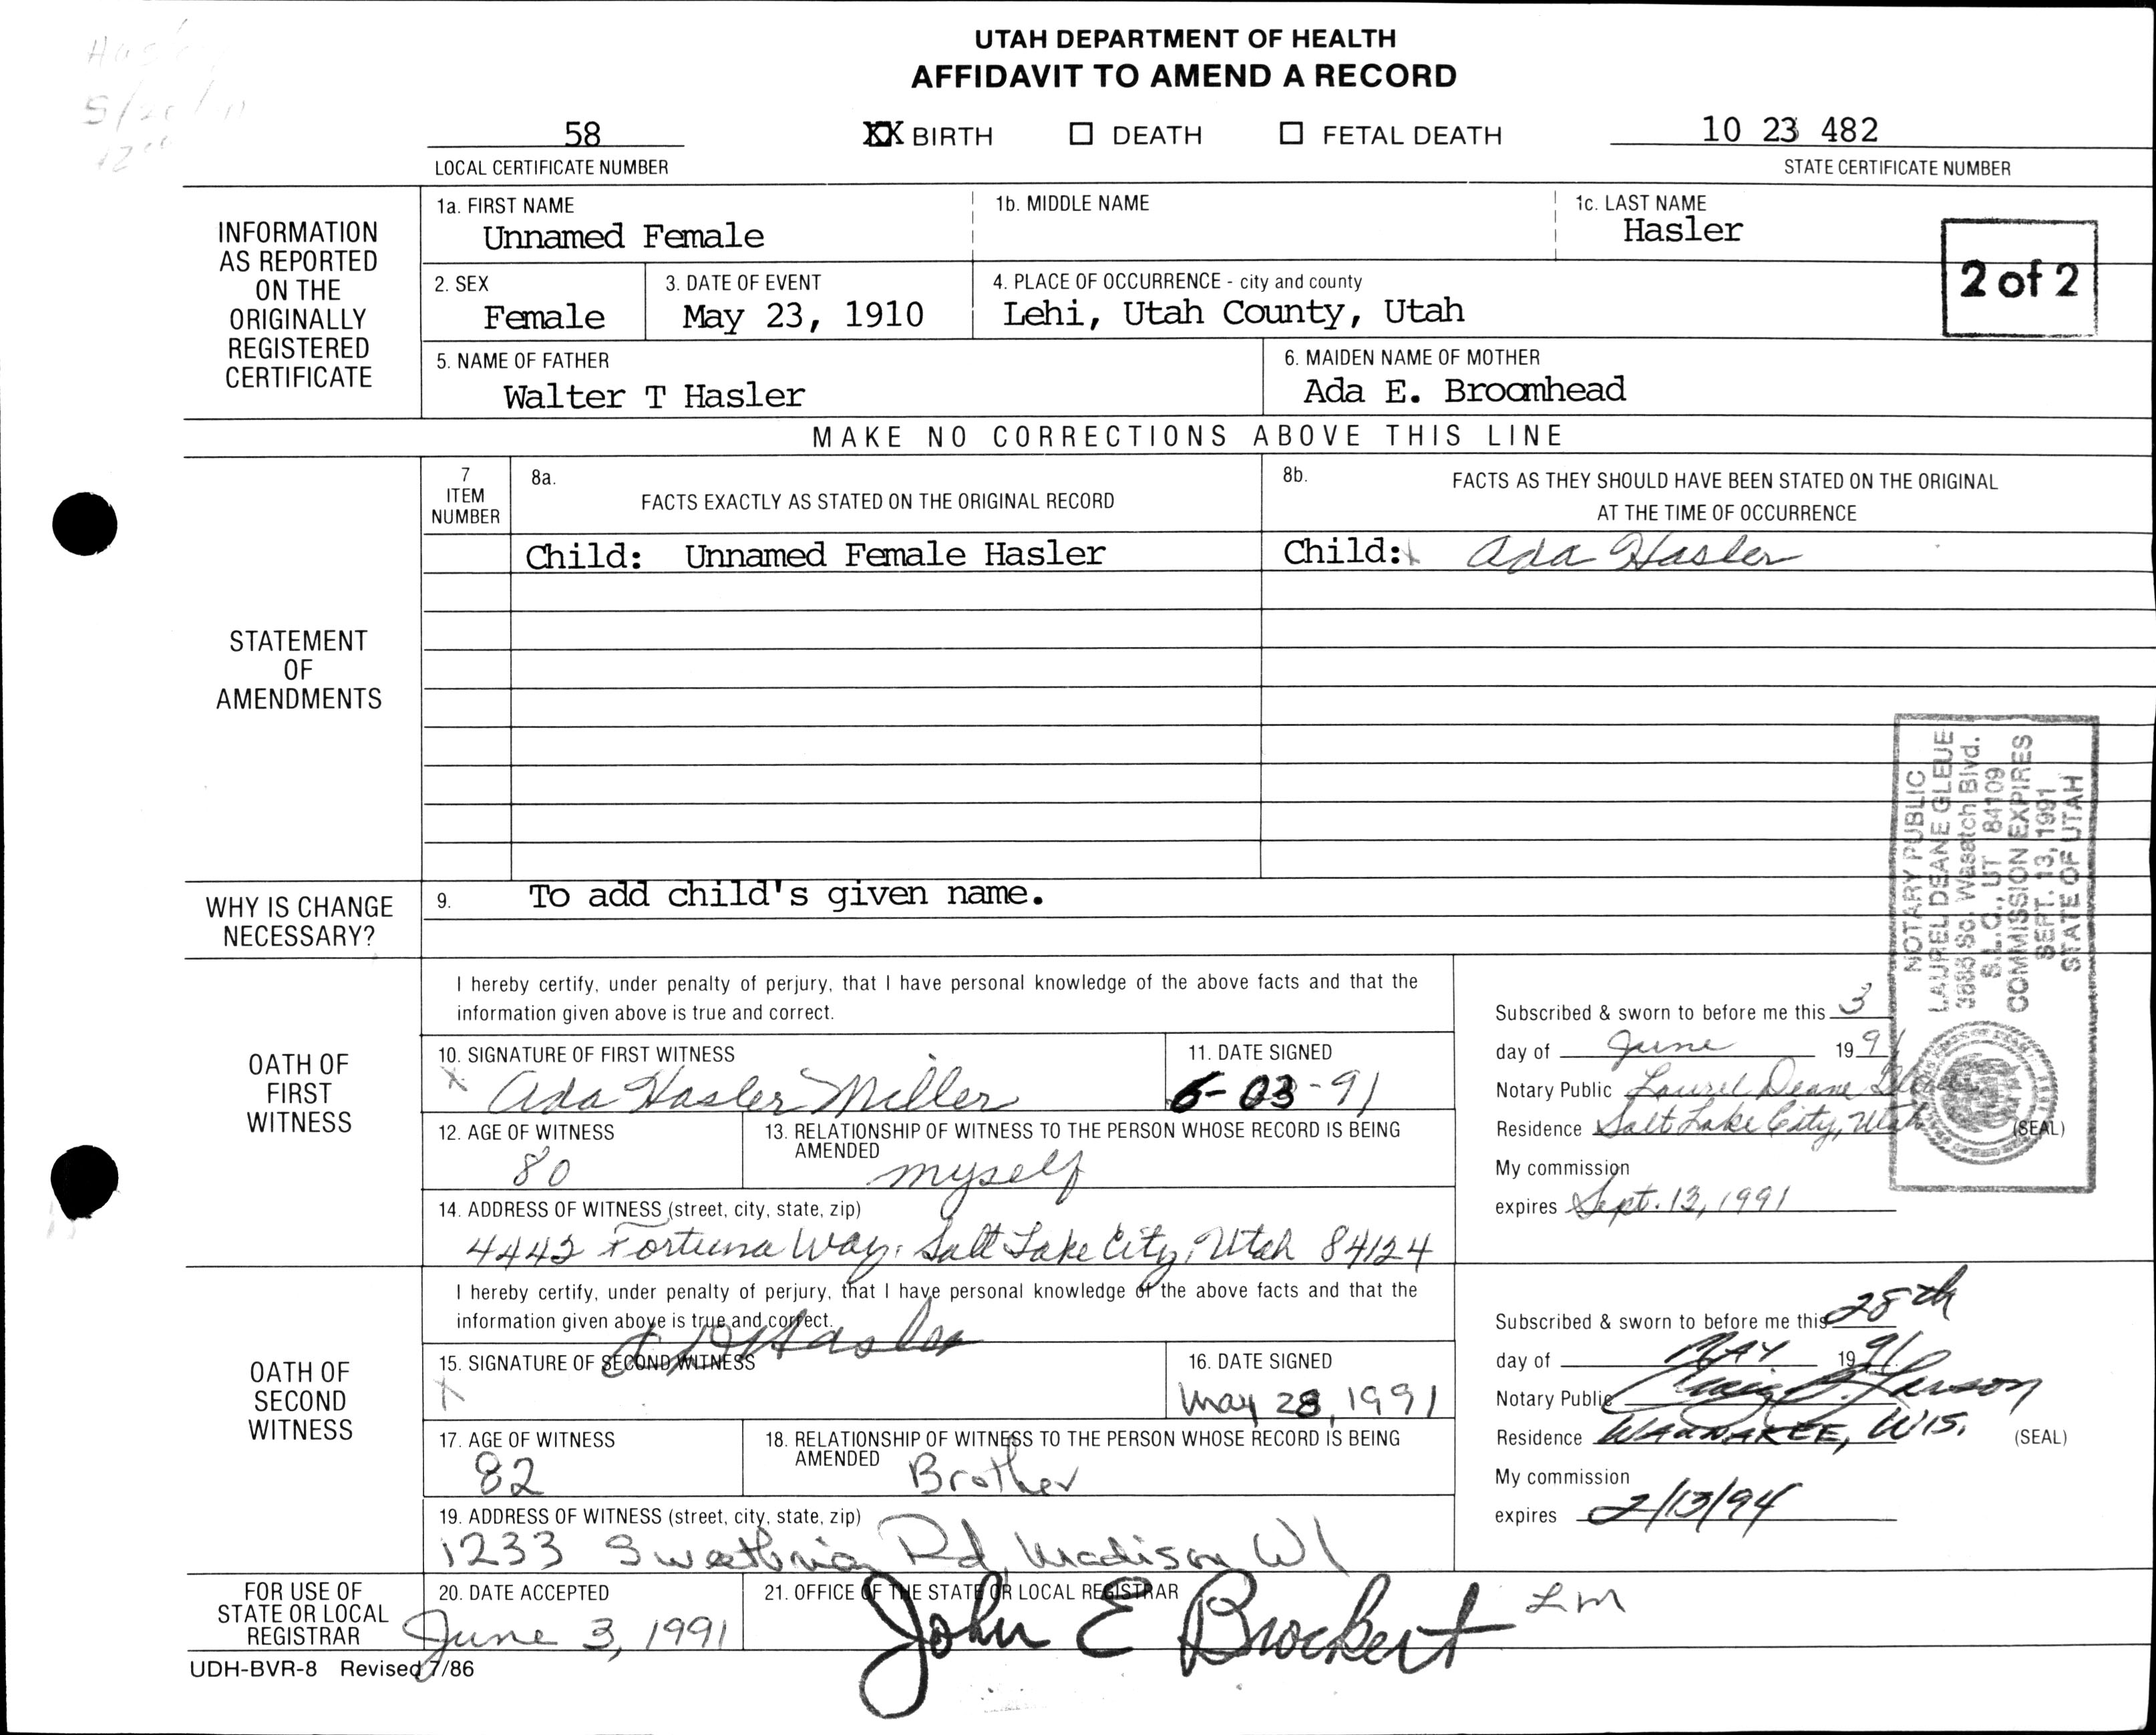 Has
5/20/
UTAH DEPARTMENT OF HEALTH
AFFIDAVIT TO AMEND A RECORD
58
XX BIRTH
DEATH
FETAL DEATH
10 23 482
LOCAL CERTIFICATE NUMBER
STATE CERTIFICATE NUMBER
INFORMATION
AS REPORTED
ON THE
ORIGINALLY
REGISTERED
CERTIFICATE
1a. FIRST NAME
Unnamed Female
1b. MIDDLE NAME
1c. LAST NAME
Hasler
2 of 2
2. SEX
Female
3. DATE OF EVENT
May 23, 1910
4. PLACE OF OCCURRENCE - city and county
Lehi, Utah County, Utah
5. NAME OF FATHER
Walter T Hasler
6. MAIDEN NAME OF MOTHER
Ada E. Broomhead
MAKE NO CORRECTIONS ABOVE THIS LINE
STATEMENT
OF
AMENDMENTS
7
ITEM
NUMBER
8a.
FACTS EXACTLY AS STATED ON THE ORIGINAL RECORD
8b.
FACTS AS THEY SHOULD HAVE BEEN STATED ON THE ORIGINAL
AT THE TIME OF OCCURRENCE
Child: Unnamed Female Hasler
Child: x Ada Hasler
WHY IS CHANGE
NECESSARY?
9. To add child's given name.
NOTARY PUBLIC
LAUREL DEANE GLEUE
So. Wasatch Blvd.
S.L.C., UT 84109
COMMISSION EXPIRES
SEPT. 13, 1991
STATE OF UTAH
OATH OF
FIRST
WITNESS
I hereby certify, under penalty of perjury, that I have personal knowledge of the above facts and that the
information given above is true and correct.
10. SIGNATURE OF FIRST WITNESS
x Ada Hasler Miller
11. DATE SIGNED
6-03-91
12. AGE OF WITNESS
80
13. RELATIONSHIP OF WITNESS TO THE PERSON WHOSE RECORD IS BEING
AMENDED
myself
14. ADDRESS OF WITNESS (street, city, state, zip)
4442 Fortuna Way, Salt Lake City, Utah 84124
Subscribed & sworn to before me this 3
day of June 1991
Notary Public Laurel Deane Gleue
Residence Salt Lake City, Utah
(SEAL)
My commission
expires Sept. 13, 1991
OATH OF
SECOND
WITNESS
I hereby certify, under penalty of perjury, that I have personal knowledge of the above facts and that the
information given above is true and correct.
15. SIGNATURE OF SECOND WITNESS
x Hasler
16. DATE SIGNED
May 28, 1991
17. AGE OF WITNESS
82
18. RELATIONSHIP OF WITNESS TO THE PERSON WHOSE RECORD IS BEING
AMENDED
Brother
19. ADDRESS OF WITNESS (street, city, state, zip)
1233 Sweetbriar Rd, Madison WI
Subscribed & sworn to before me this 28th
day of MAY 1991
Notary Public Craig Larson
Residence WAUNAKEE, WIS.
(SEAL)
My commission
expires 2/13/94
FOR USE OF
STATE OR LOCAL
REGISTRAR
20. DATE ACCEPTED
June 3, 1991
21. OFFICE OF THE STATE OR LOCAL REGISTRAR
John E Brockert LM
UDH-BVR-8 Revised 7/86